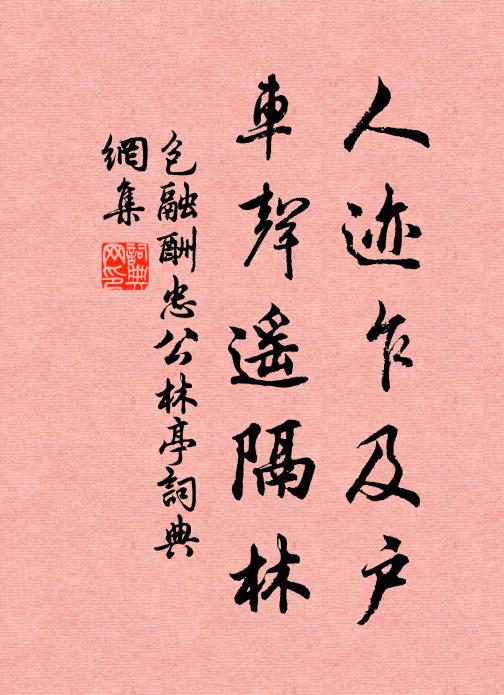 人迹乍及户
車聲遥隔林
包融酬忠公林亭詞典
網集
詞典
网印